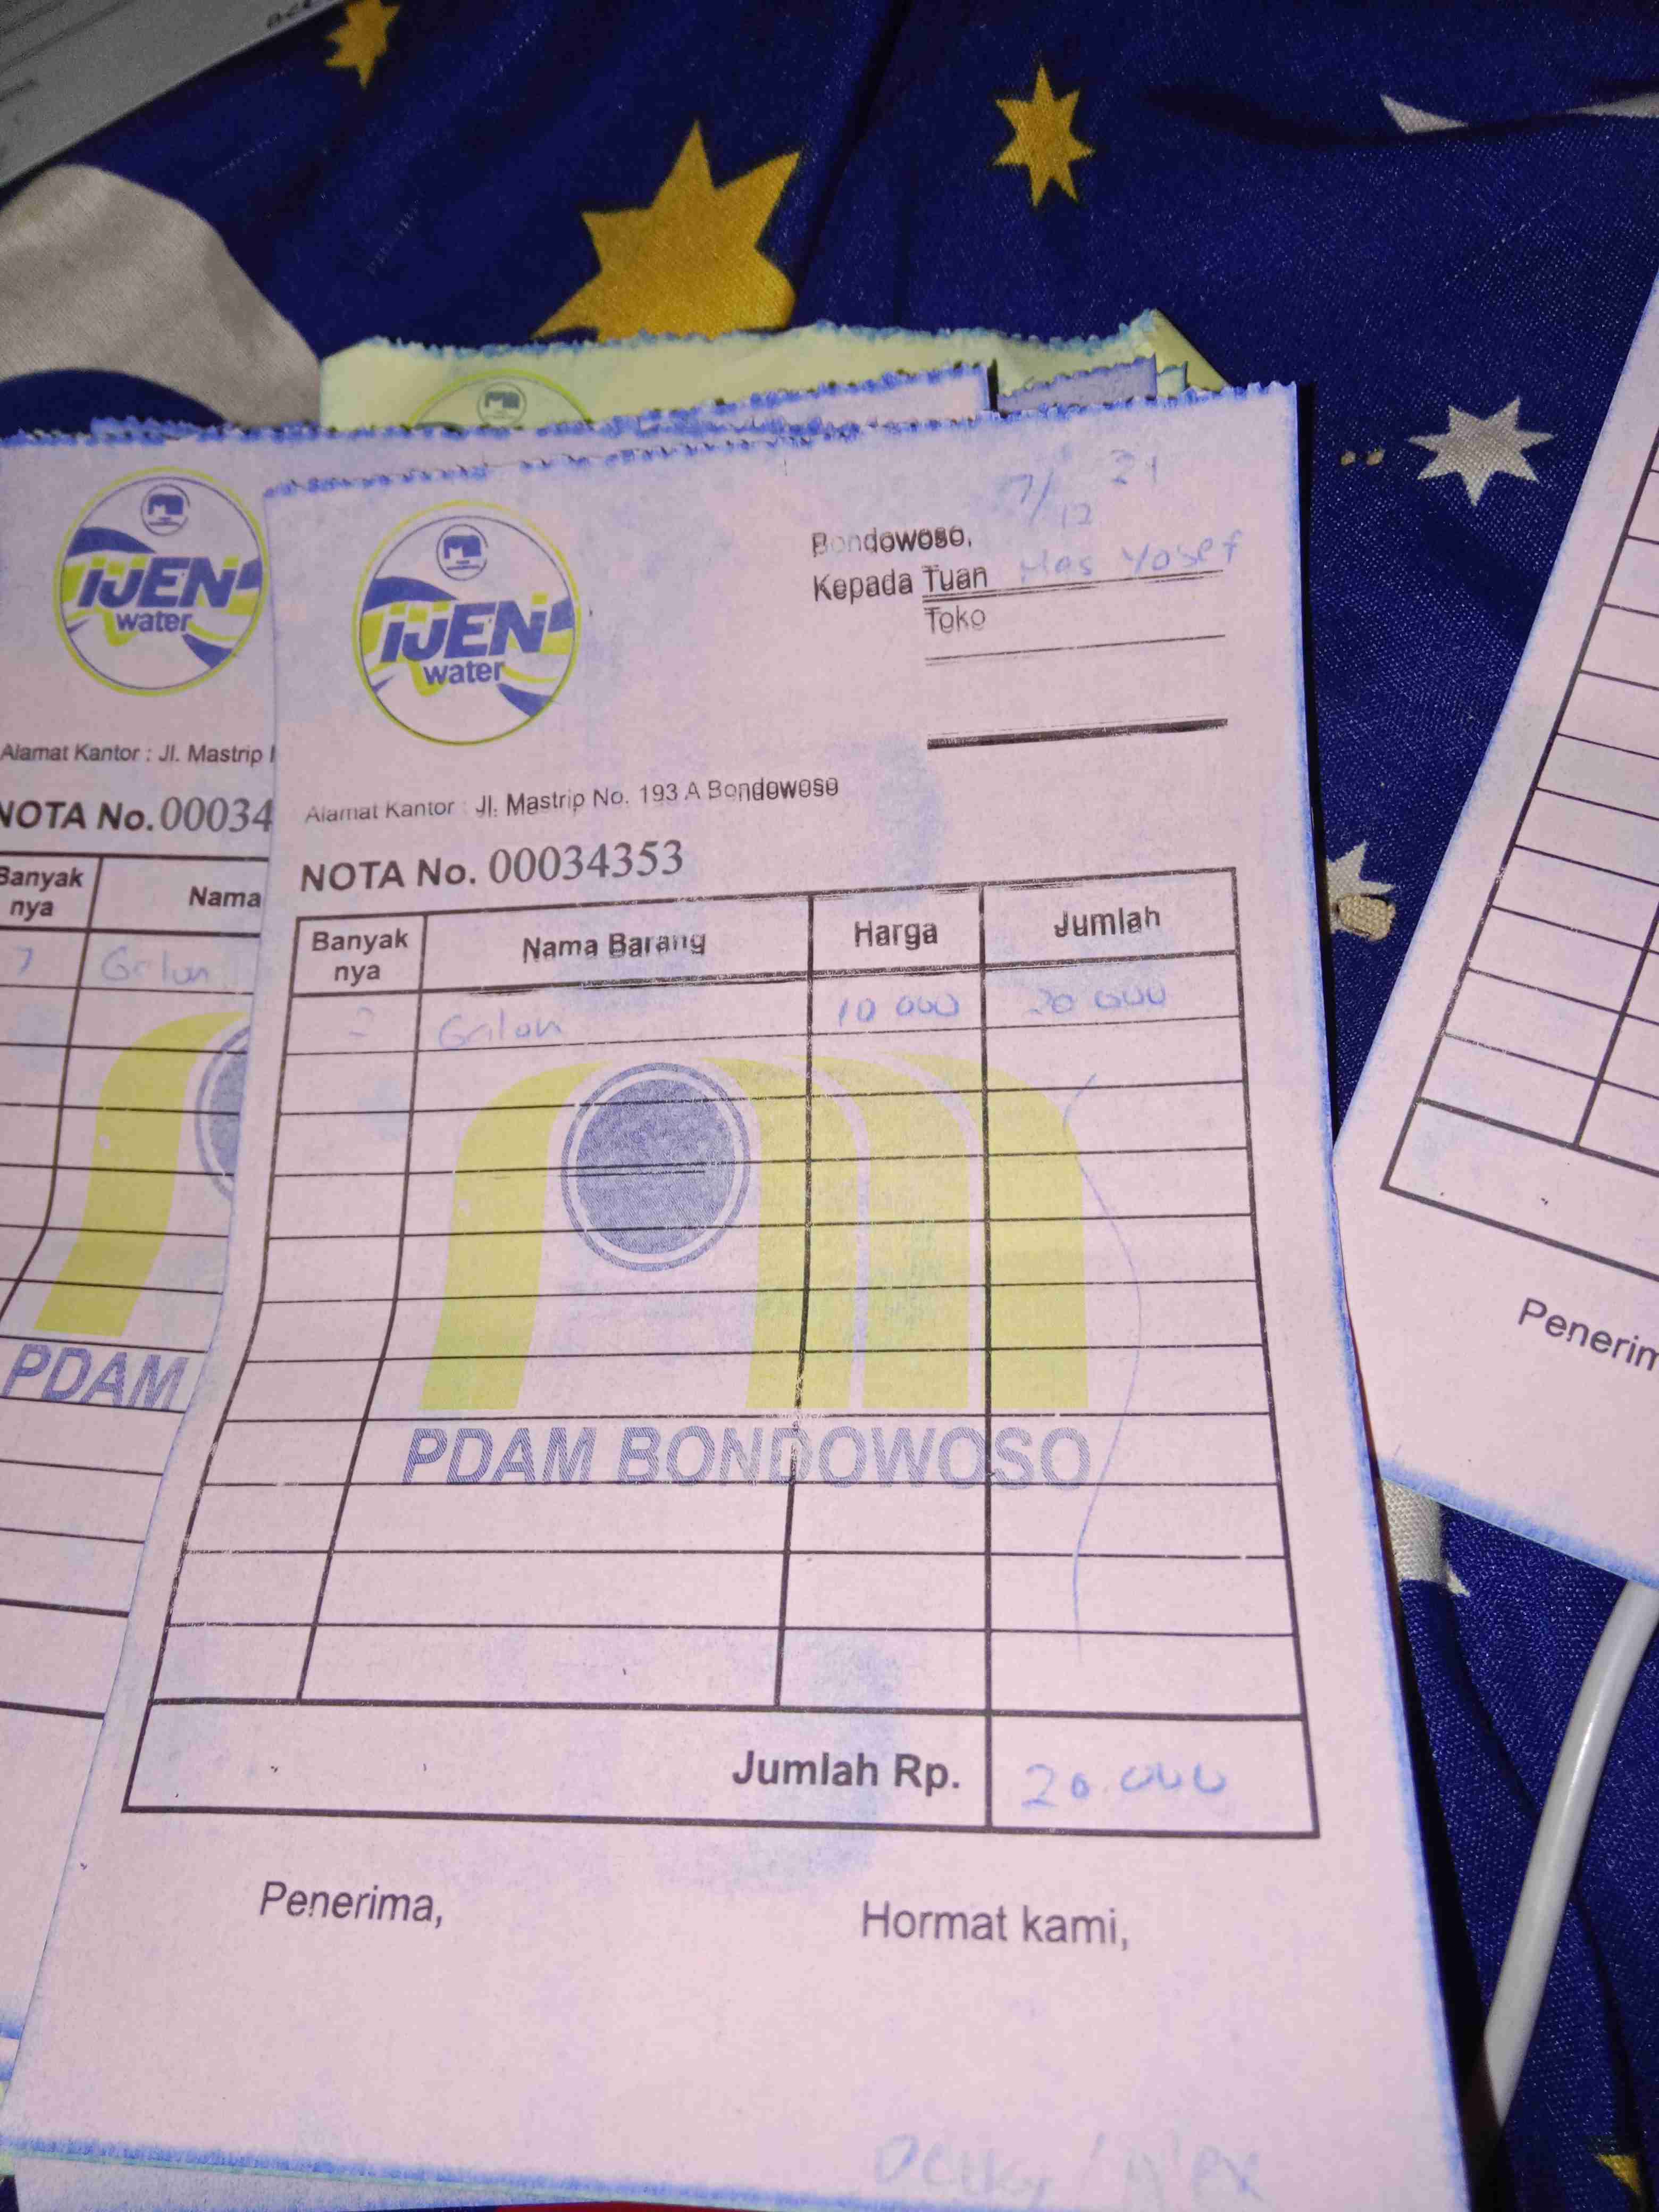 IJEN
water
Alamat Kantor : Jl. Mastrip
NOTA No. 00034
Banyak
nya
Nama
7 Galon
PDAM
IJEN
water
7/12 21
Bondowoso,
Kepada Tuan Mas Yosef
Toko
Alamat Kantor : Jl. Mastrip No. 193 A Bondowoso
NOTA No. 00034353
Banyak
nya
Nama Barang
Harga
Jumlah
2 Galon 10 000 20 000
PDAM BONDOWOSO
Jumlah Rp. 20.000
Penerima,
Hormat kami,
Penerim